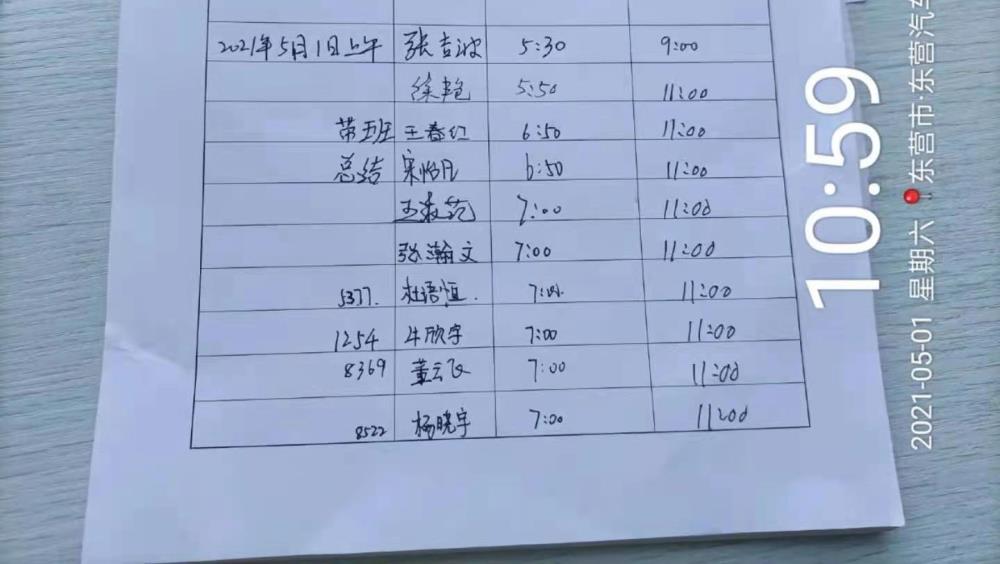 2021年5月1日上午 张吉波 5:30 9:00
徐艳 5:50 11:00
带班 王春红 6:50 11:00
总结 宋怡凡 6:50 11:00
王 7:00 11:00
张瀚文 7:00 11:00
5377. 杜语恒. 7:00. 11:00
1254 牛欣宇 7:00 11:00
8369 董云飞 7:00 11:00
8522 杨晓宇 7:00 11:00
10:59
2021-05-01 星期六 东营市·东营汽车